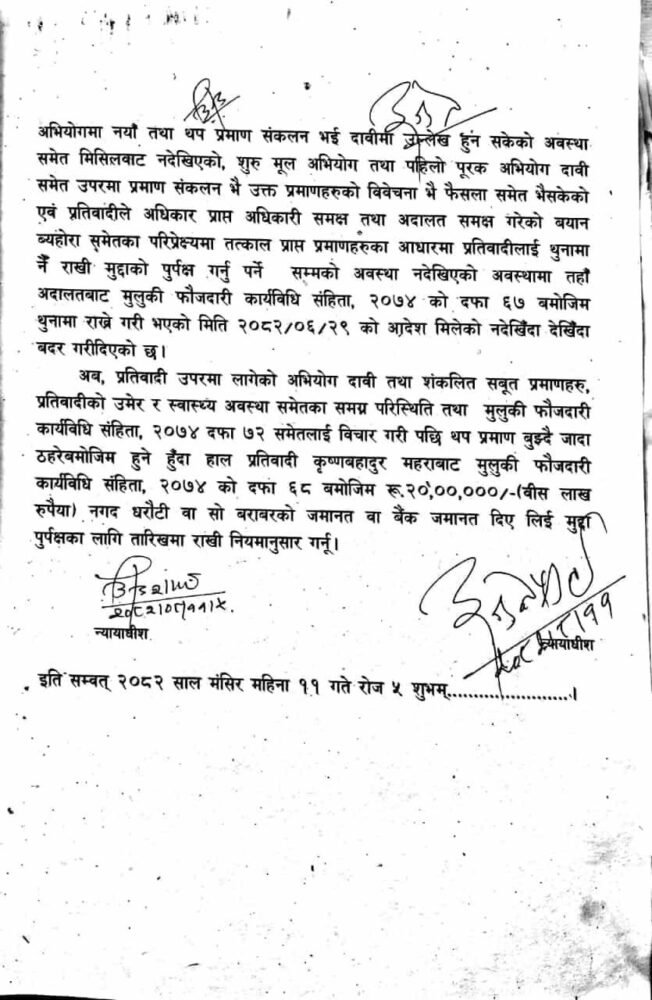 अभियोगमा नयाँ तथा थप प्रमाण संकलन भई दावीमा उल्लेख हुन सकेको अवस्था
समेत मिसिलवाट नदेखिएको, शुरु मूल अभियोग तथा पहिलो पूरक अभियोग दावी
समेत उपरमा प्रमाण संकलन भै उक्त प्रमाणहरुको विवेचना भै फैसला समेत भैसकेको
एवं प्रतिवादीले अधिकार प्राप्त अधिकारी समक्ष तथा अदालत समक्ष गरेको बयान
ब्यहोरा समेतका परिप्रेक्ष्यमा तत्काल प्राप्त प्रमाणहरुका आधारमा प्रतिवादीलाई थुनामा
नैं राखी मुद्दाको पुर्पक्ष गर्नु पर्ने सम्मको अवस्था नदेखिएको अवस्थामा तहाँ
अदालतबाट मुलुकी फौजदारी कार्यविधि संहिता, २०७४ को दफा ६७ बमोजिम
थुनामा राख्ने गरी भएको मिति २०८२/०६/२९ को आदेश मिलेको नदेखिँदा देखिँदा
बदर गरीदिएको छ।
अब, प्रतिवादी उपरमा लागेको अभियोग दावी तथा शंकलित सबूत प्रमाणहरु,
प्रतिवादीको उमेर र स्वास्थ्य अवस्था समेतका समग्र परिस्थिति तथा मुलुकी फौजदारी
कार्यविधि संहिता, २०७४ दफा ७२ समेतलाई विचार गरी पछि थप प्रमाण बुझ्दै जादा
ठहरेबमोजिम हुने हुँदा हाल प्रतिवादी कृष्णबहादुर महराबाट मुलुकी फौजदारी
कार्यविधि संहिता, २०७४ को दफा ६८ बमोजिम रू.२०,००,०००/-(वीस लाख
रुपैया) नगद धरौटी वा सो बराबरको जमानत वा बैंक जमानत दिए लिई मुद्दा
पुर्पक्षका लागि तारिखमा राखी नियमानुसार गर्नू।
न्यायाधीश
न्यायाधीश
इति सम्वत् २०८२ साल मंसिर महिना ११ गते रोज ५ शुभम्........................।